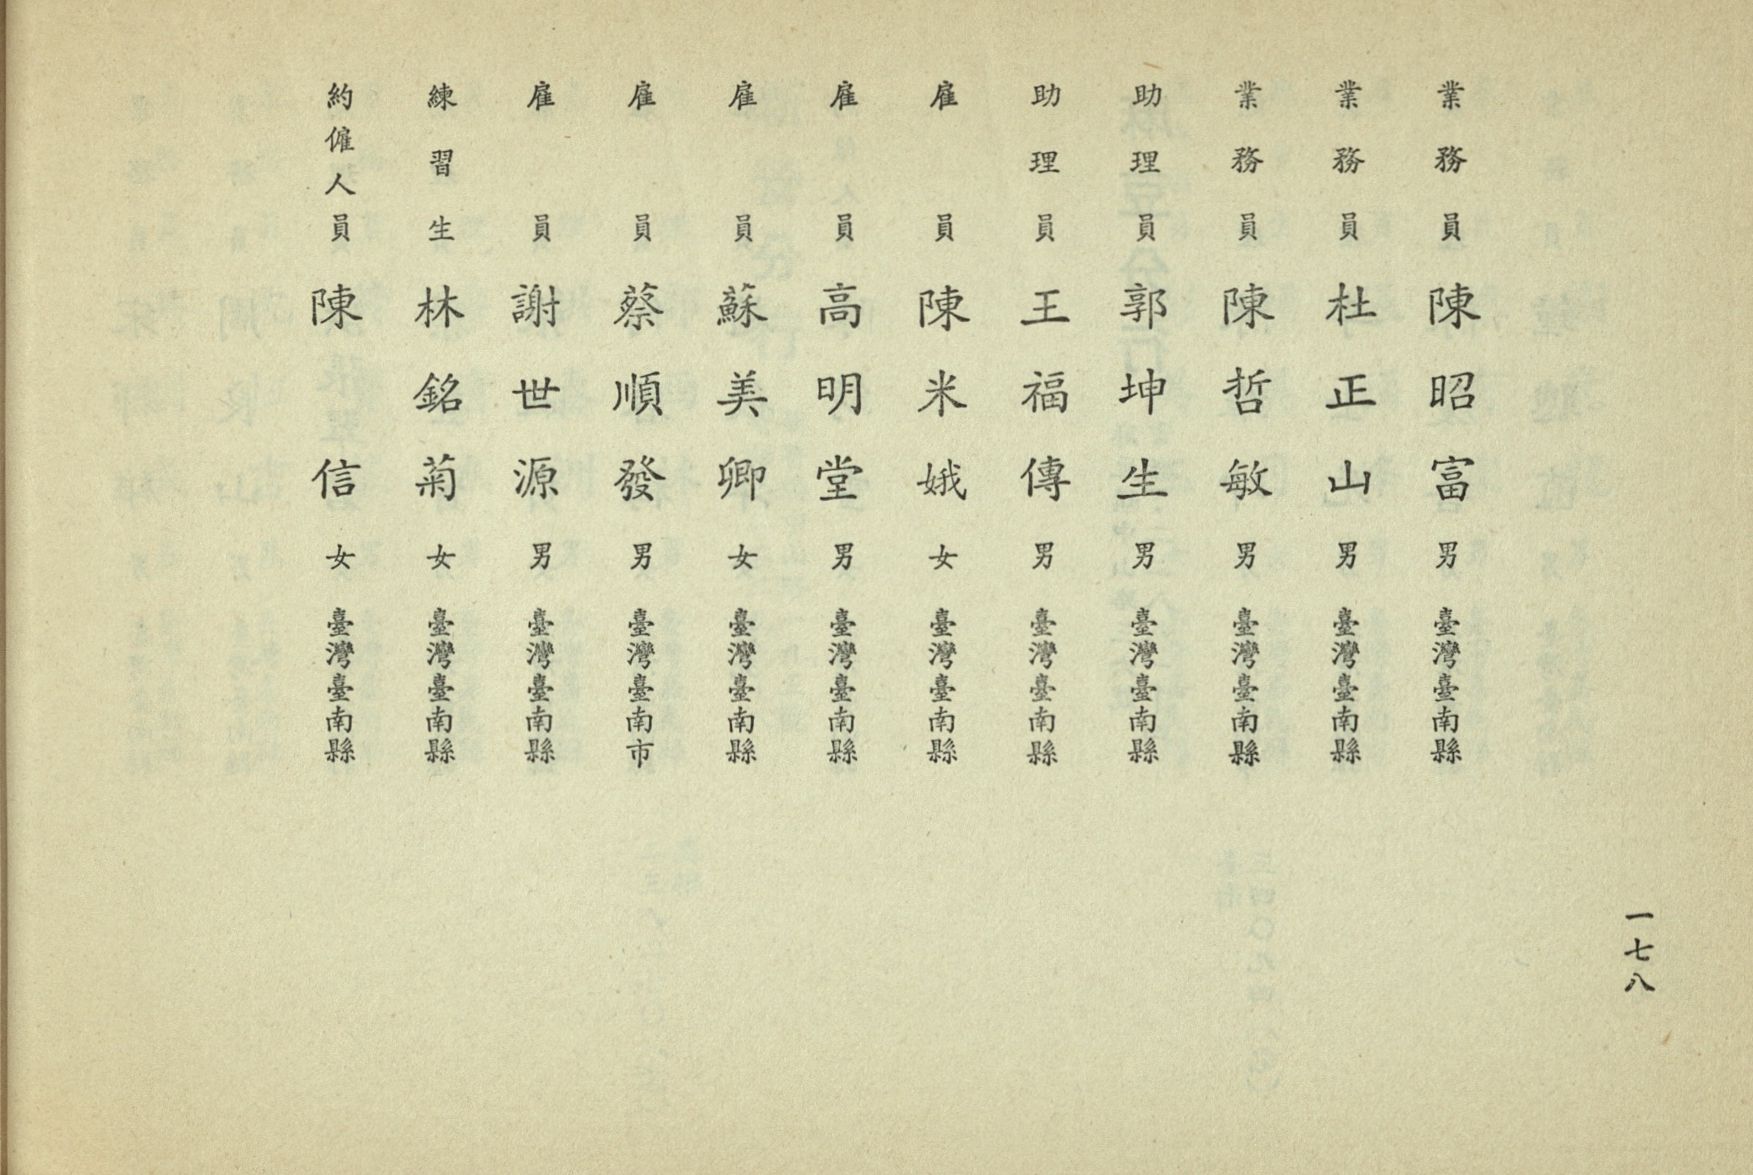 業務員陳昭富男臺灣臺南縣
業務員杜正山男臺灣臺南縣
業務員陳哲敏男臺灣臺南縣
助理員郭坤生男臺灣臺南縣
助理員王福傳男臺灣臺南縣
雇員陳米娥女臺灣臺南縣
雇員高明堂男臺灣臺南縣
雇員蘇美卿女臺灣臺南縣
雇員蔡順發男臺灣臺南市
雇員謝世源男臺灣臺南縣
練習生林銘菊女臺灣臺南縣
約僱人員陳信女臺灣臺南縣
一七八